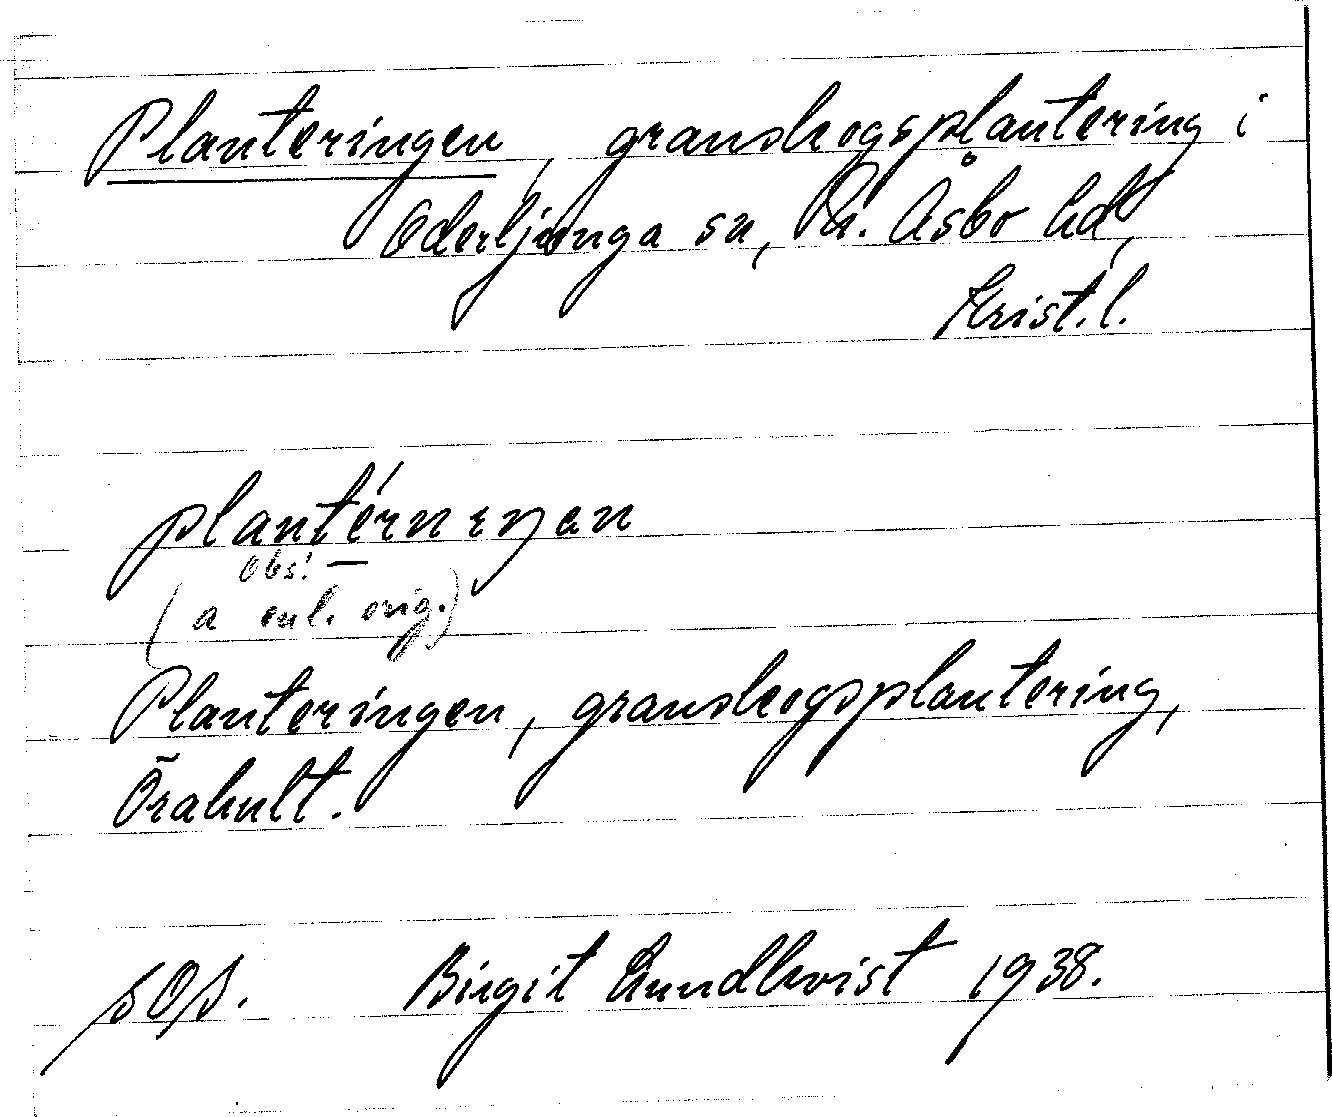 Planteringen, granskogsplantering i
Oderljunga sn, N. Åsbo hd,
Krist. l.
plantérnıŋan
Obs! —
(a enl. orig.)
Planteringen, granskogsplantering,
Örahult.
sOs. Birgit Lundkvist 1938.